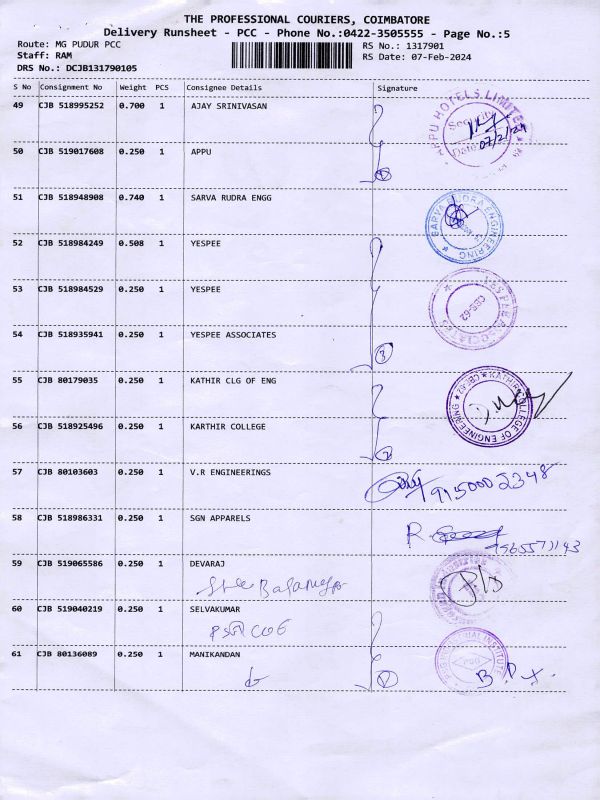 THE PROFESSIONAL COURIERS, COIMBATORE
Delivery Runsheet - PCC - Phone No.:0422-3505555 - Page No.:5
Route: MG PUDUR PCC RS No.: 1317901
Staff: RAM RS Date: 07-Feb-2024
DRS No.: DCJB131790105
S No Consignment No Weight PCS Consignee Details Signature
49 CJB 518995252 0.700 1 AJAY SRINIVASAN
APPU HOTELS LIMITED
Security
Date 07/2/24
50 CJB 519017608 0.250 1 APPU
51 CJB 518948908 0.740 1 SARVA RUDRA ENGG
SARVA RUDRA ENGINEERING
52 CJB 518984249 0.508 1 YESPEE
53 CJB 518984529 0.250 1 YESPEE
YESPEE ASSOCIATES
CBE-62
54 CJB 518935941 0.250 1 YESPEE ASSOCIATES
3
55 CJB 80179035 0.250 1 KATHIR CLG OF ENG
KATHIR COLLEGE OF ENGINEERING
CBE-62
56 CJB 518925496 0.250 1 KARTHIR COLLEGE
2
57 CJB 80103603 0.250 1 V.R ENGINEERINGS
9150002348
58 CJB 518986331 0.250 1 SGN APPARELS
R.
59 CJB 519065586 0.250 1 DEVARAJ
60 CJB 519040219 0.250 1 SELVAKUMAR
61 CJB 80136089 0.250 1 MANIKANDAN
PSG INDUSTRIAL INSTITUTE
PSG